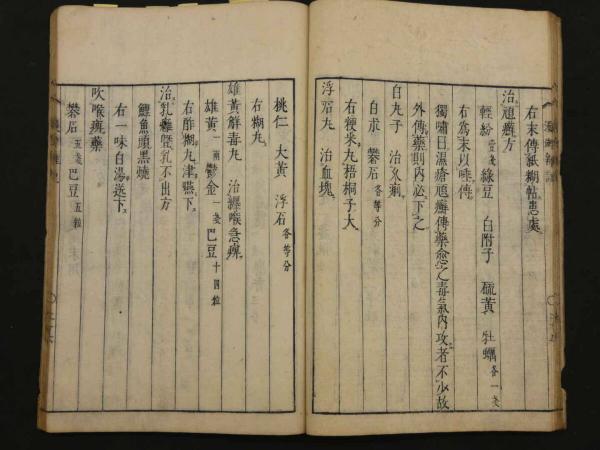 右末傳紙糊帖患處
治頑癬方
輕紛壹戔綠豆 白附子 硫黄 牡蠣各一戔
右為末以唾傳
獨嘯曰濕瘡頑癬傳藥愈之毒氣内攻者不少故
外傳藥則内必下之
白丸子 治久痢
白朮 礬石各等分
右粳米丸梧桐子大
浮石丸 治血塊
桃仁 大黄 浮石各等分
右糊丸
雄黄解毒丸 治纏喉急痺
雄黄一兩鬱金一戔巴豆十四粒
右酢糊丸津嚥下
治乳癰從乳不出方
鯉魚頭黒燒
右一味白湯送下
吹喉痺藥
礬石五戔巴豆五粒